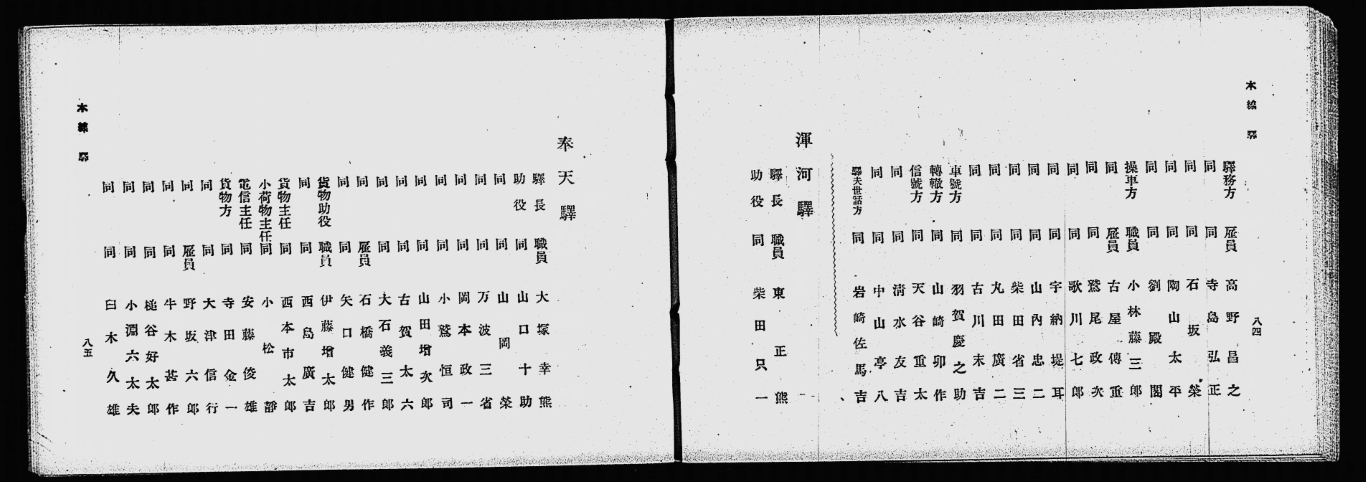 本線驛
八四
驛務方 雇員 高野昌之
同 同 寺島弘正
同 同 石坂榮
同 同 陶山太平
同 同 劉殿閣
操車方 職員 小林藤三郎
同 雇員 古屋傳重
同 同 鷲尾政次
同 同 歌川七郎
同 同 宇納堤耳
同 同 山內忠二
同 同 柴田省三
同 同 丸田廣二
同 同 古川末吉
車號方 同 羽賀慶之助
轉轍方 同 山崎卯作
信號方 同 天谷重太
同 同 淸水友吉
同 同 中山亭八
驛夫世話方 同 岩崎佐馬吉
渾河驛
驛長 職員 東正熊
助役 同 柴田只一
奉天驛
驛長 職員 大塚幸熊
助役 同 山口十助
同 同 山岡榮
同 同 万波三省
同 同 岡本政一
同 同 小鷲恒司
同 同 山田增次郎
同 同 古賀太六
同 同 大石義三郎
同 雇員 石橋健作
同 同 矢口健男
貨物助役 職員 伊藤增太郎
同 同 西島廣吉
貨物主任 同 西本市太郎
小荷物主任 同 小松靜
電信主任 同 安藤俊雄
貨物方 同 寺田金一
同 同 大津信行
同 雇員 野坂六郎
同 同 牛木甚作
同 同 槌谷好太郎
同 同 小淵六太夫
同 同 臼木久雄
本線驛
八五